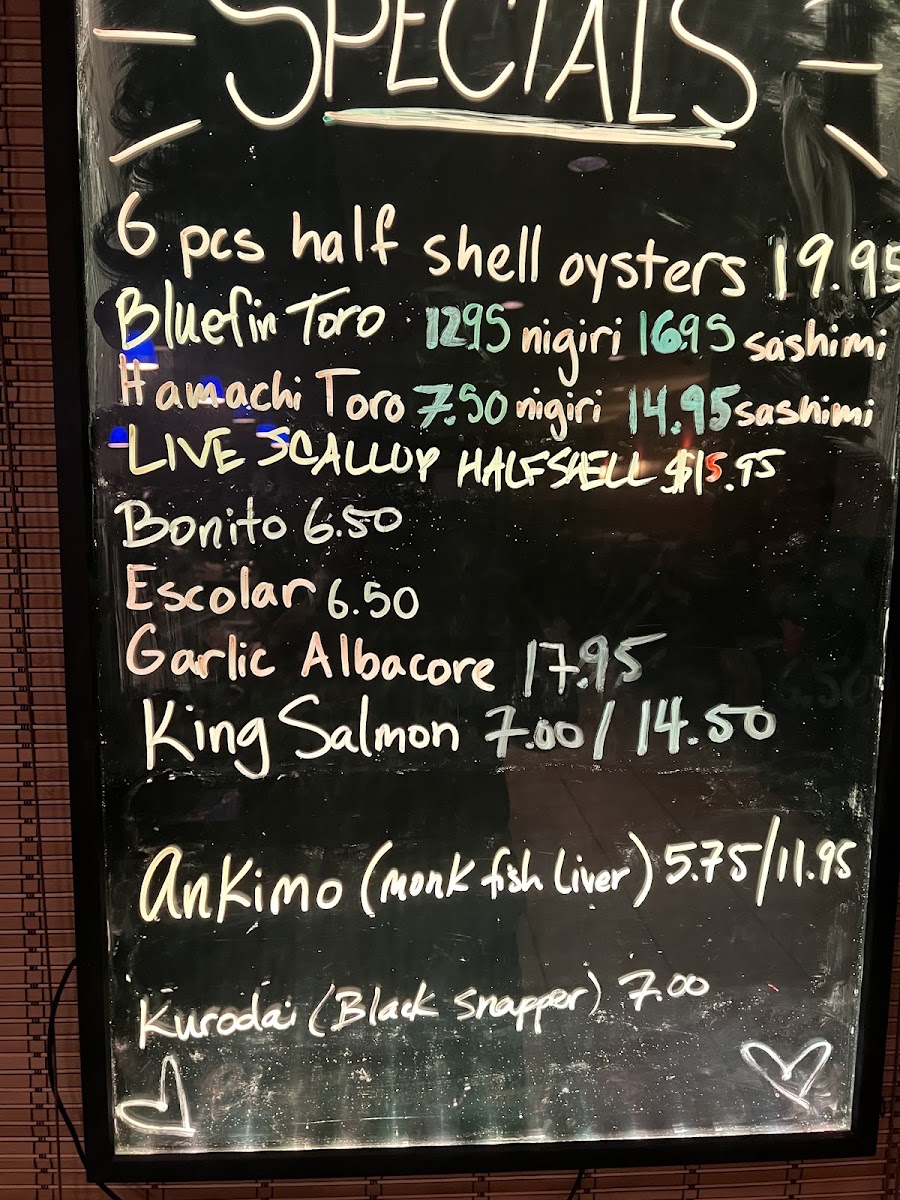 SPECIALS
6 pcs half shell oysters 19.95
Bluefin Toro 1295 nigiri 16.95 sashimi
Hamachi Toro 7.50 nigiri 14.95 sashimi
LIVE SCALLOP HALFSHELL $15.95
Bonito 6.50
Escolar 6.50
Garlic Albacore 17.95
King Salmon 7.00/14.50
Ankimo (monk fish Liver) 5.75/11.95
Kurodai (Black snapper) 7.00